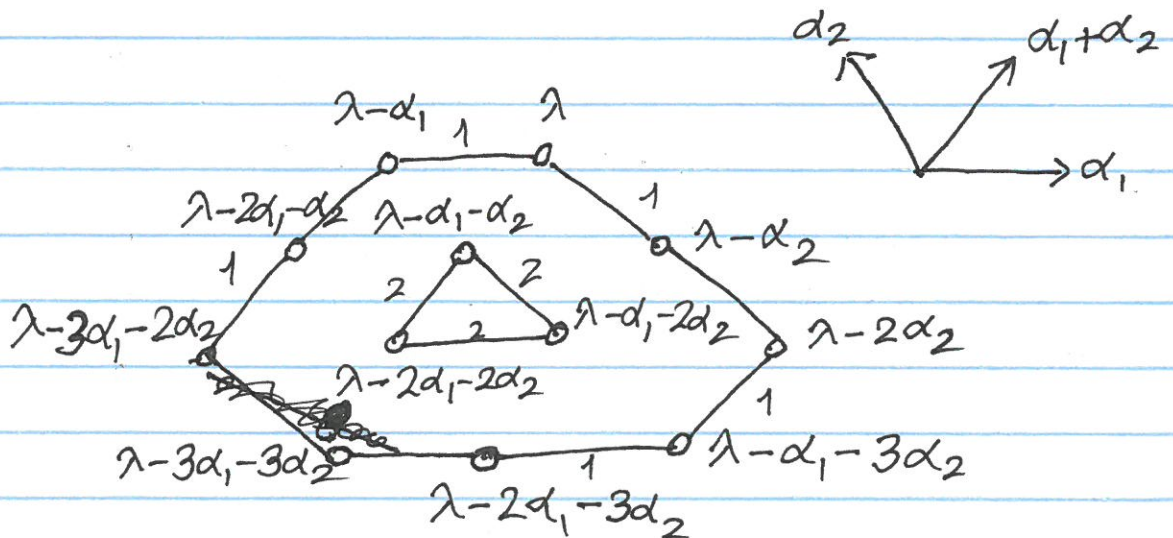 α₂ α₁+α₂
α₁
λ-α₁ 1 λ
λ-2α₁-α₂ λ-α₁-α₂ 1 λ-α₂
1 2 2
λ-3α₁-2α₂ 2 λ-α₁-2α₂ λ-2α₂
λ-2α₁-2α₂ 1
λ-3α₁-3α₂ 1 λ-α₁-3α₂
λ-2α₁-3α₂